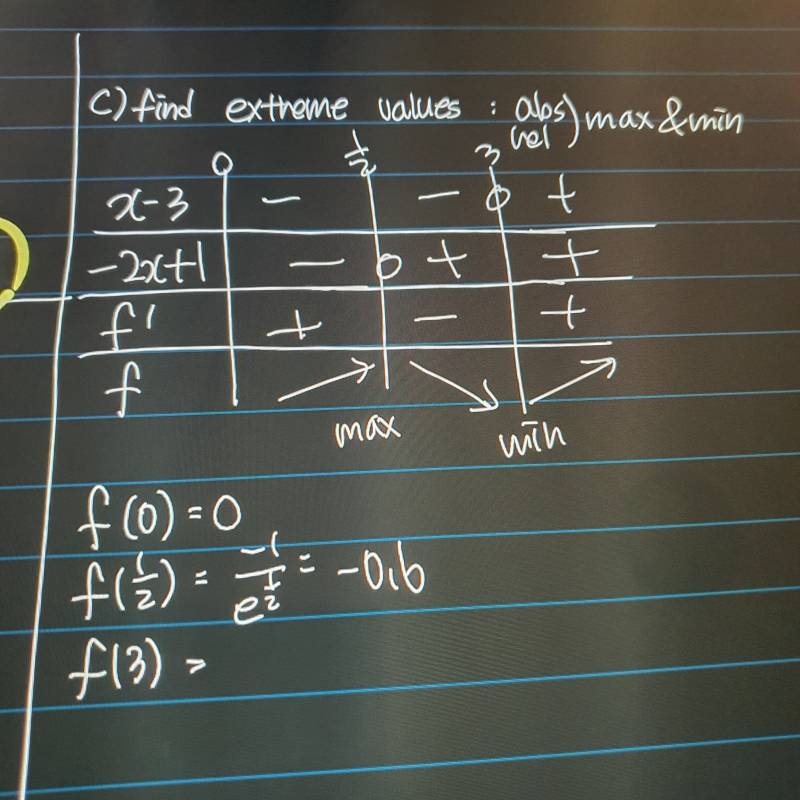 c) find extreme values : abs) max & min
rel
0 1/2 3
x-3 - - 0 +
-2x+1 - 0 + +
f' + - +
f ↗ ↘ ↗
max min
f(0) = 0
f(1/2) = -1/e^(1/2) = -0.6
f(3) =